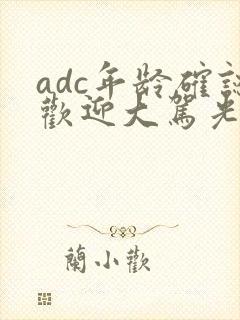 adc年龄確認
歡迎大駕光
蘭小歡